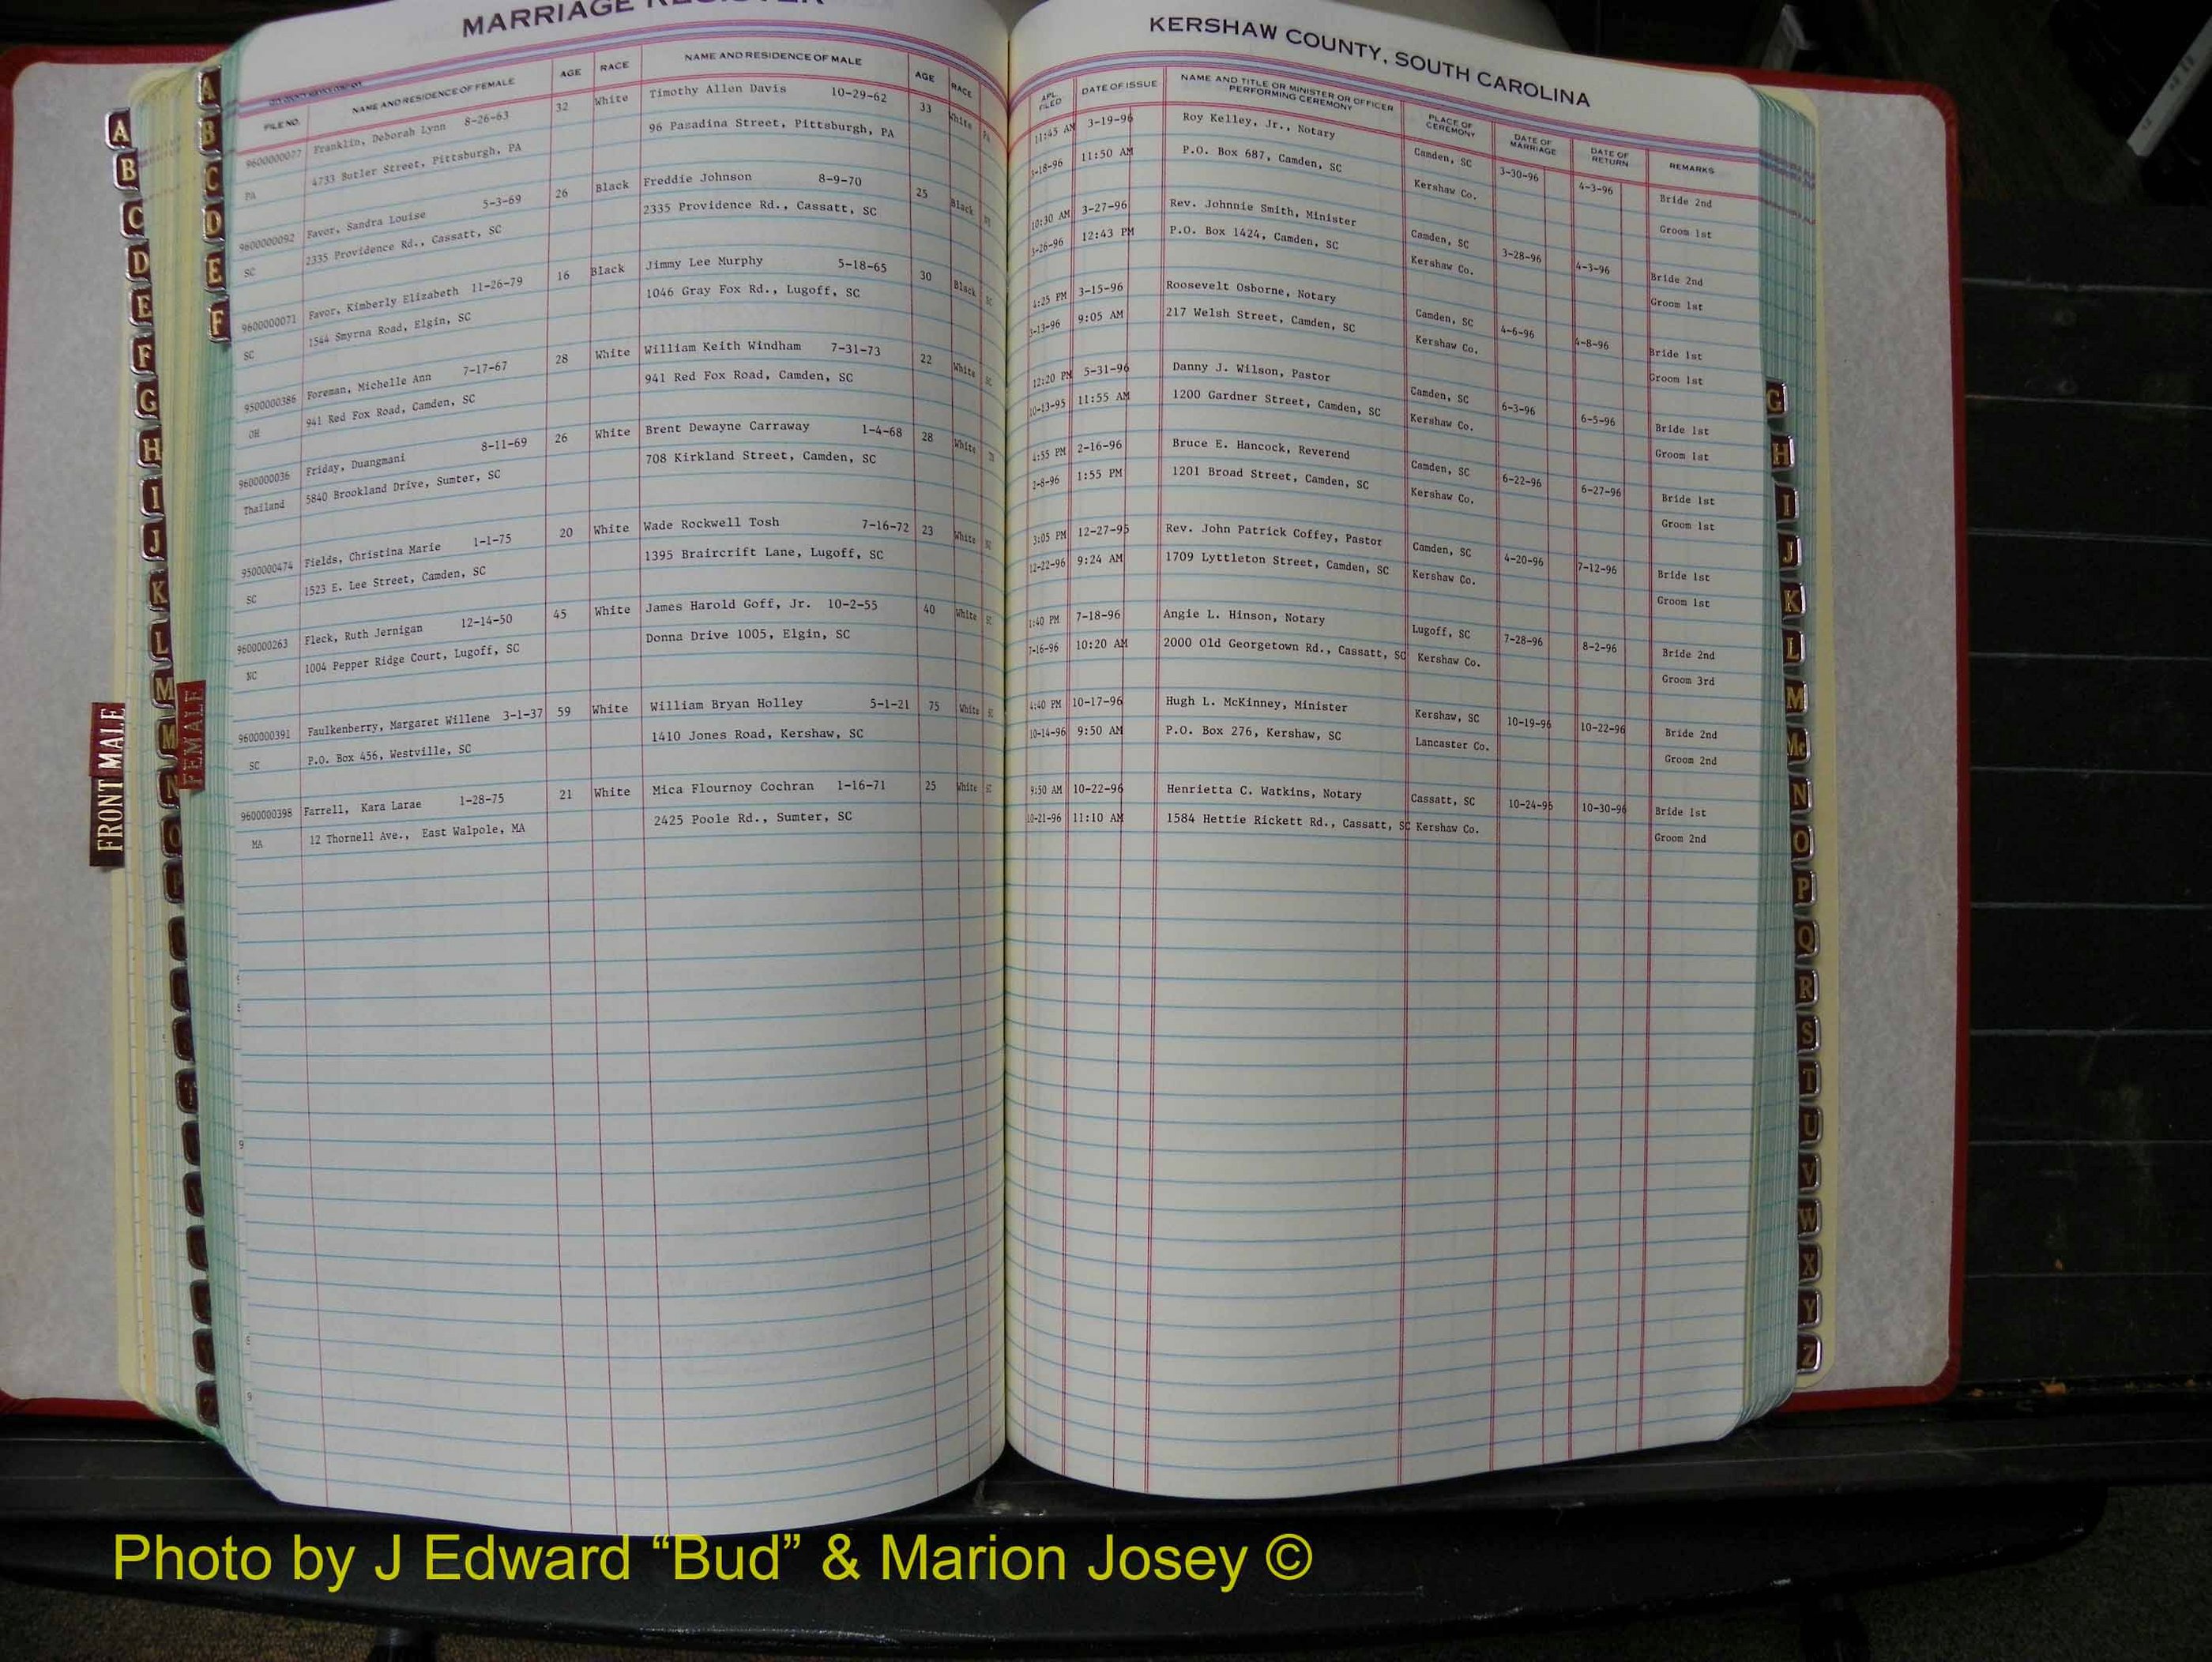 MARRIAGE REGISTER
FILE NO. NAME AND RESIDENCE OF FEMALE AGE RACE NAME AND RESIDENCE OF MALE AGE RACE
9600000077 Franklin, Deborah Lynn 8-26-63 32 White Timothy Allen Davis 10-29-62 33 White PA
PA 4733 Butler Street, Pittsburgh, PA 96 Pasadina Street, Pittsburgh, PA
9600000092 Favor, Sandra Louise 5-3-69 26 Black Freddie Johnson 8-9-70 25 Black
SC 2335 Providence Rd., Cassatt, SC 2335 Providence Rd., Cassatt, SC
9600000071 Favor, Kimberly Elizabeth 11-26-79 16 Black Jimmy Lee Murphy 5-18-65 30 Black SC
SC 1544 Smyrna Road, Elgin, SC 1046 Gray Fox Rd., Lugoff, SC
9500000386 Foreman, Michelle Ann 7-17-67 28 White William Keith Windham 7-31-73 22 White SC
OH 941 Red Fox Road, Camden, SC 941 Red Fox Road, Camden, SC
9600000036 Friday, Duangmani 8-11-69 26 White Brent Dewayne Carraway 1-4-68 28 White
Thailand 5840 Brookland Drive, Sumter, SC 708 Kirkland Street, Camden, SC
9500000474 Fields, Christina Marie 1-1-75 20 White Wade Rockwell Tosh 7-16-72 23 White
SC 1523 E. Lee Street, Camden, SC 1395 Braircrift Lane, Lugoff, SC
9600000263 Fleck, Ruth Jernigan 12-14-50 45 White James Harold Goff, Jr. 10-2-55 40 White SC
NC 1004 Pepper Ridge Court, Lugoff, SC Donna Drive 1005, Elgin, SC
9600000391 Faulkenberry, Margaret Willene 3-1-37 59 White William Bryan Holley 5-1-21 75 White SC
SC P.O. Box 456, Westville, SC 1410 Jones Road, Kershaw, SC
9600000398 Farrell, Kara Larae 1-28-75 21 White Mica Flournoy Cochran 1-16-71 25 White SC
MA 12 Thornell Ave., East Walpole, MA 2425 Poole Rd., Sumter, SC
KERSHAW COUNTY, SOUTH CAROLINA
APL. FILED DATE OF ISSUE NAME AND TITLE OR MINISTER OR OFFICER PERFORMING CEREMONY PLACE OF CEREMONY DATE OF MARRIAGE DATE OF RETURN REMARKS
11:45 AM 3-19-96 Roy Kelley, Jr., Notary Camden, SC 3-30-96 4-3-96 Bride 2nd
3-18-96 11:50 AM P.O. Box 687, Camden, SC Kershaw Co. Groom 1st
10:30 AM 3-27-96 Rev. Johnnie Smith, Minister Camden, SC 3-28-96 4-3-96 Bride 2nd
3-26-96 12:43 PM P.O. Box 1424, Camden, SC Kershaw Co. Groom 1st
4:25 PM 3-15-96 Roosevelt Osborne, Notary Camden, SC 4-6-96 4-8-96 Bride 1st
3-13-96 9:05 AM 217 Welsh Street, Camden, SC Kershaw Co. Groom 1st
12:20 PM 5-31-96 Danny J. Wilson, Pastor Camden, SC 6-3-96 6-5-96 Bride 1st
10-13-95 11:55 AM 1200 Gardner Street, Camden, SC Kershaw Co. Groom 1st
4:55 PM 2-16-96 Bruce E. Hancock, Reverend Camden, SC 6-22-96 6-27-96 Bride 1st
2-8-96 1:55 PM 1201 Broad Street, Camden, SC Kershaw Co. Groom 1st
3:05 PM 12-27-95 Rev. John Patrick Coffey, Pastor Camden, SC 4-20-96 7-12-96 Bride 1st
12-22-96 9:24 AM 1709 Lyttleton Street, Camden, SC Kershaw Co. Groom 1st
1:40 PM 7-18-96 Angie L. Hinson, Notary Lugoff, SC 7-28-96 8-2-96 Bride 2nd
7-16-96 10:20 AM 2000 Old Georgetown Rd., Cassatt, SC Kershaw Co. Groom 3rd
4:40 PM 10-17-96 Hugh L. McKinney, Minister Kershaw, SC 10-19-96 10-22-96 Bride 2nd
10-14-96 9:50 AM P.O. Box 276, Kershaw, SC Lancaster Co. Groom 2nd
9:50 AM 10-22-96 Henrietta C. Watkins, Notary Cassatt, SC 10-24-96 10-30-96 Bride 1st
10-21-96 11:10 AM 1584 Hettie Rickett Rd., Cassatt, SC Kershaw Co. Groom 2nd
A
B
C
D
E
F
G
H
I
J
K
L
M
N
O
A
B
C
D
E
F
FRONT MALE
FEMALE
G
H
I
J
K
L
M
Mc
N
O
P
Q
R
S
T
U
V
W
X
Y
Z
Photo by J Edward “Bud” & Marion Josey ©